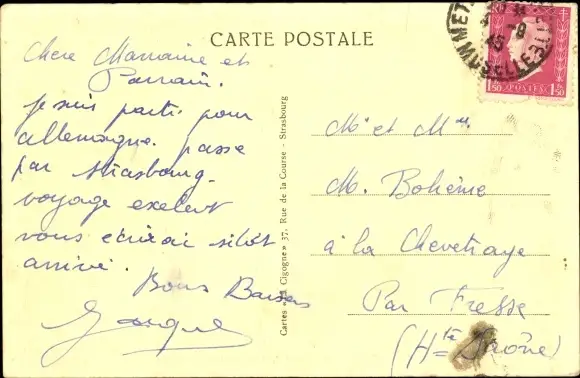 CARTE POSTALE
Chere Marraine et
Parrain.
Je suis parti pour
allemagne. passe
par Strasbourg.
voyage exelent
vous ecrirai sitôt
arrivé.
Bons Baisers
Cartes « La Cigogne » 37, Rue de la Course - Strasbourg
METZ
45
MOSELLE
1F50 POSTES 1F50
Mr et Mme
M. Bohème
à la Chevetraye
Par Fresse
(Hte Saône)